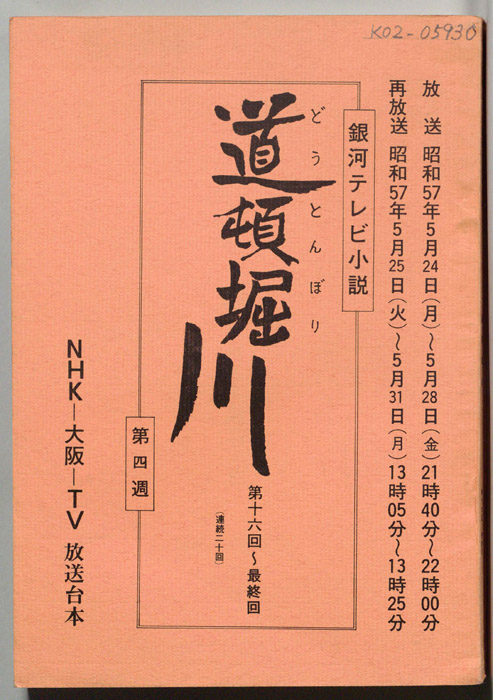 K02-05930
放送 昭和57年5月24日(月)~5月28日(金) 21時40分~22時00分
再放送 昭和57年5月25日(火)~5月31日(月) 13時05分~13時25分
銀河テレビ小説
どうとんぼり
道頓堀川
第十六回~最終回
(連続二十回)
第四週
NHK-大阪-TV 放送台本